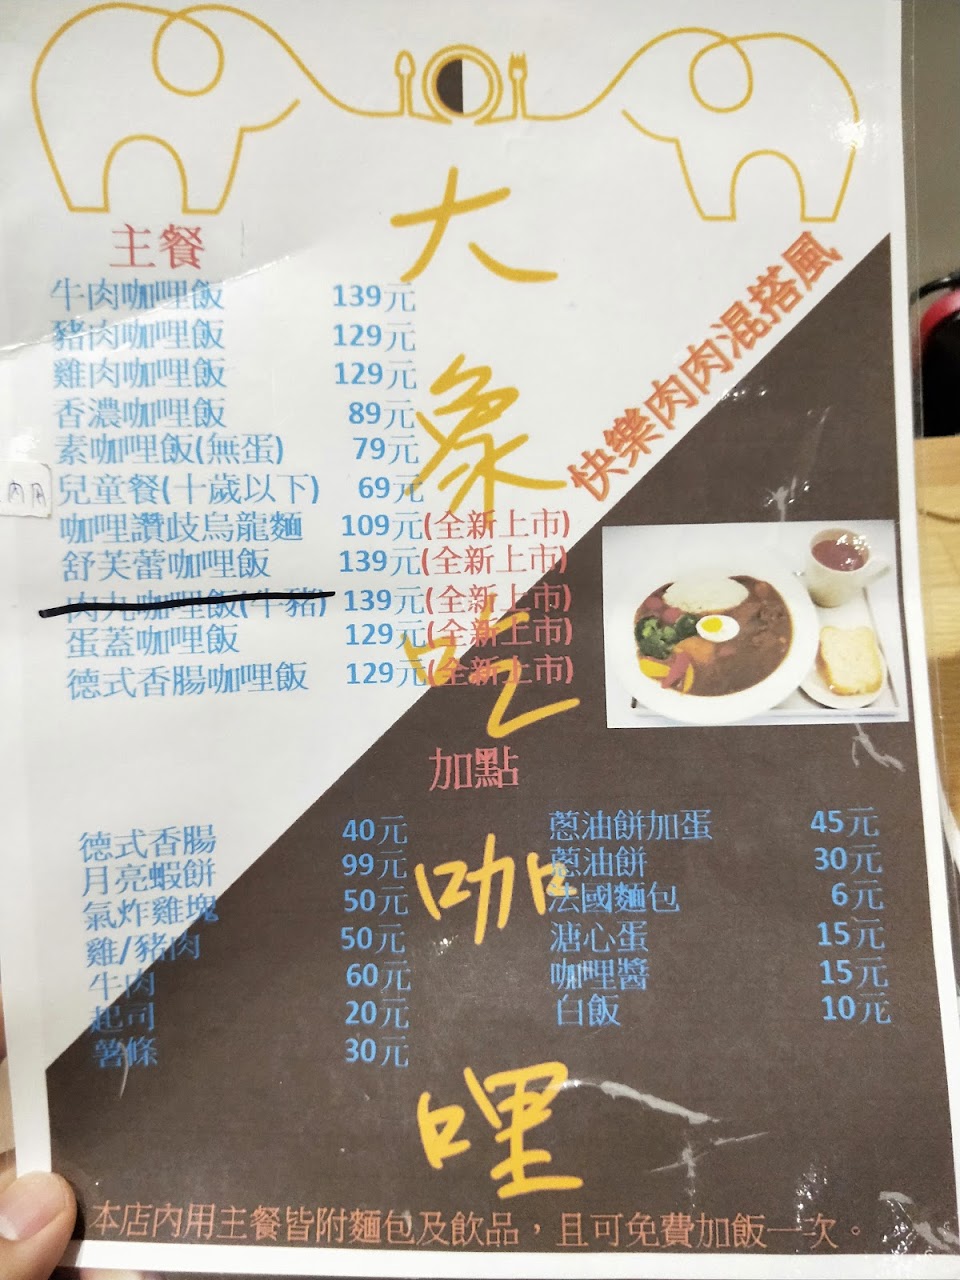 大象吃咖哩
快樂肉肉混搭風
主餐
牛肉咖哩飯 139元
豬肉咖哩飯 129元
雞肉咖哩飯 129元
香濃咖哩飯 89元
素咖哩飯(無蛋) 79元
內用
兒童餐(十歲以下) 69元
咖哩讚歧烏龍麵 109元(全新上市)
舒芙蕾咖哩飯 139元(全新上市)
肉丸咖哩飯(牛豬) 139元(全新上市)
蛋蓋咖哩飯 129元(全新上市)
德式香腸咖哩飯 129元(全新上市)
加點
德式香腸 40元
月亮蝦餅 99元
氣炸雞塊 50元
雞/豬肉 50元
牛肉 60元
起司 20元
薯條 30元
蔥油餅加蛋 45元
蔥油餅 30元
法國麵包 6元
溏心蛋 15元
咖哩醬 15元
白飯 10元
本店內用主餐皆附麵包及飲品，且可免費加飯一次。